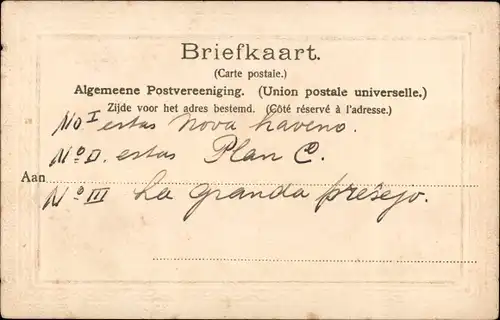 Briefkaart.
(Carte postale.)
Algemeene Postvereeniging. (Union postale universelle.)
Zijde voor het adres bestemd. (Côté réservé à l'adresse.)
No I estas Nova haveno.
No II. estas Plan C.
Aan
No III La granda preŝejo.